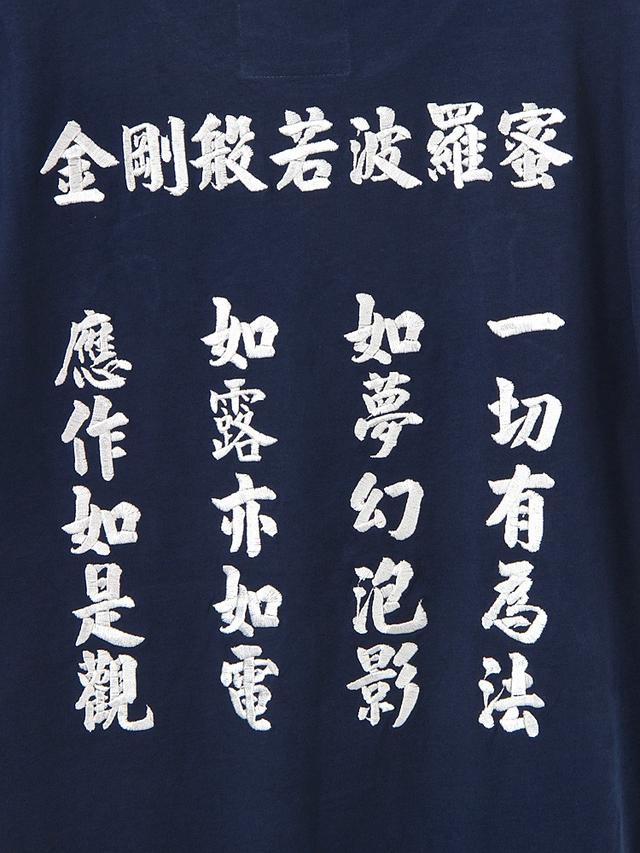 金剛般若波羅蜜
一切有為法
如夢幻泡影
如露亦如電
應作如是觀